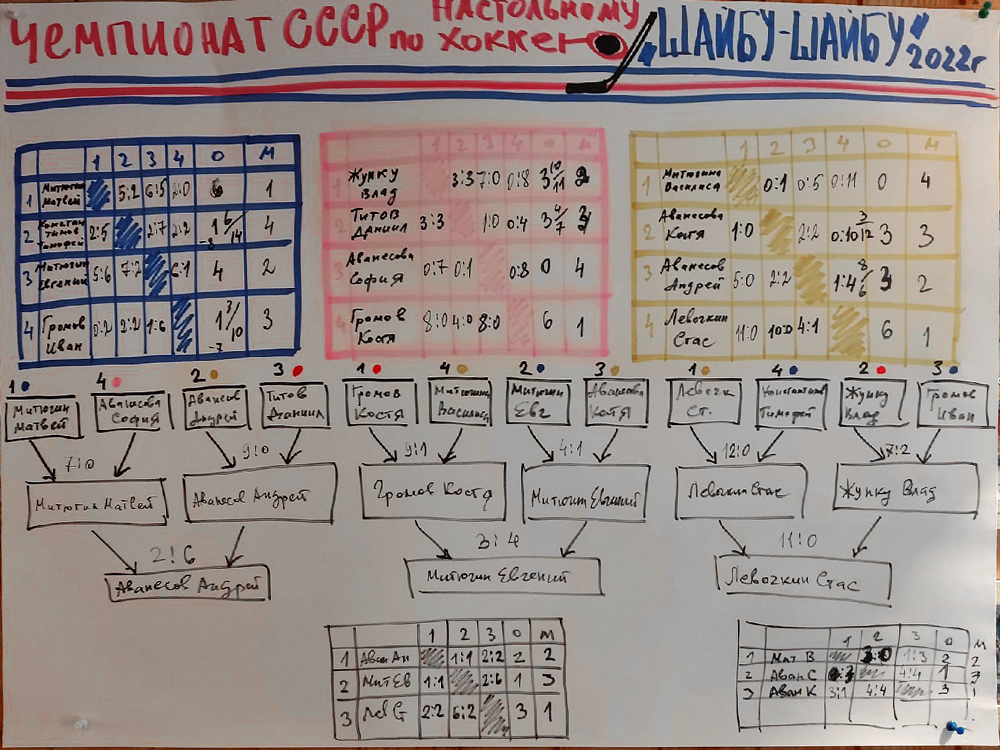 ЧЕМПИОНАТ СССР ПО НАСТОЛЬНОМУ ХОККЕЮ "ШАЙБУ-ШАЙБУ" 2022г
1 2 3 4 О М
1 Митюгин Матвей 5:2 6:5 2:0 6 1
2 Константинов Тимофей 2:5 2:7 2:2 1 6/14 -8 4
3 Митюгин Евгений 5:6 7:2 6:1 4 2
4 Громов Иван 0:2 2:2 1:6 1 3/10 -7 3
1 2 3 4 О М
1 Жунку Влад 3:3 7:0 0:8 3 10/11 2
2 Титов Даниил 3:3 1:0 0:4 3 4/7 3
3 Аванесова София 0:7 0:1 0:8 0 4
4 Громов Костя 8:0 4:0 8:0 6 1
1 2 3 4 О М
1 Митюгина Василиса 0:1 0:5 0:11 0 4
2 Аванесова Катя 1:0 2:2 0:10 3/12 3 3
3 Аванесов Андрей 5:0 2:2 1:4 8/6 3 2
4 Левочкин Стас 11:0 10:0 4:1 6 1
1 4 2 3 1 4 2 3 1 4 2 3
Митюгин Матвей
Аванесова София
Аванесов Андрей
Титов Даниил
Громов Костя
Митюгина Василиса
Митюгин Евг
Аванесова Катя
Левочк Ст.
Константинов Тимофей
Жунку Влад
Громов Иван
7:0 9:0 9:1 4:1 12:0 7:2
Митюгин Матвей
Аванесов Андрей
Громов Костя
Митюгин Евгений
Левочкин Стас
Жунку Влад
2:6 3:4 11:0
Аванесов Андрей
Митюгин Евгений
Левочкин Стас
1 2 3 О М
1 Аван Ан 1:1 2:2 2 2
2 Мит Ев 1:1 2:6 1 3
3 Лев С 2:2 6:2 3 1
1 2 3 О М
1 Мит В 3:0 1:3 2 2
2 Аван С 0:3 4:4 1 3
3 Аван К 3:1 4:4 3 1